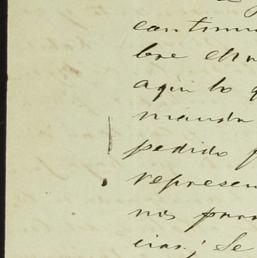 continu
bre el
aqui lo q
manda
pedido p
represen
nos para
cias; Se